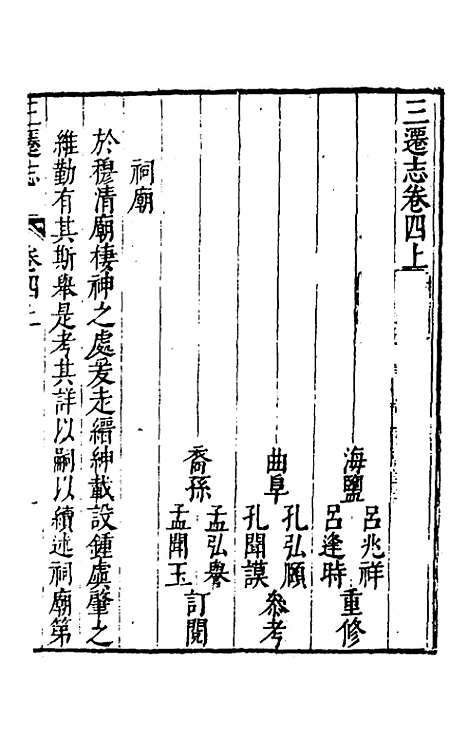 三遷志卷四上
海鹽 呂兆祥 呂逢時 重修
曲阜 孔弘顒 孔聞謨 參考
裔孫 孟弘譽 孟聞玉 訂閱
祠廟
於穆清廟棲神之處爰走縉紳載設鍾虡肇之
維勤有其斯舉是考其詳以嗣以續述祠廟第
三遷志 卷四上